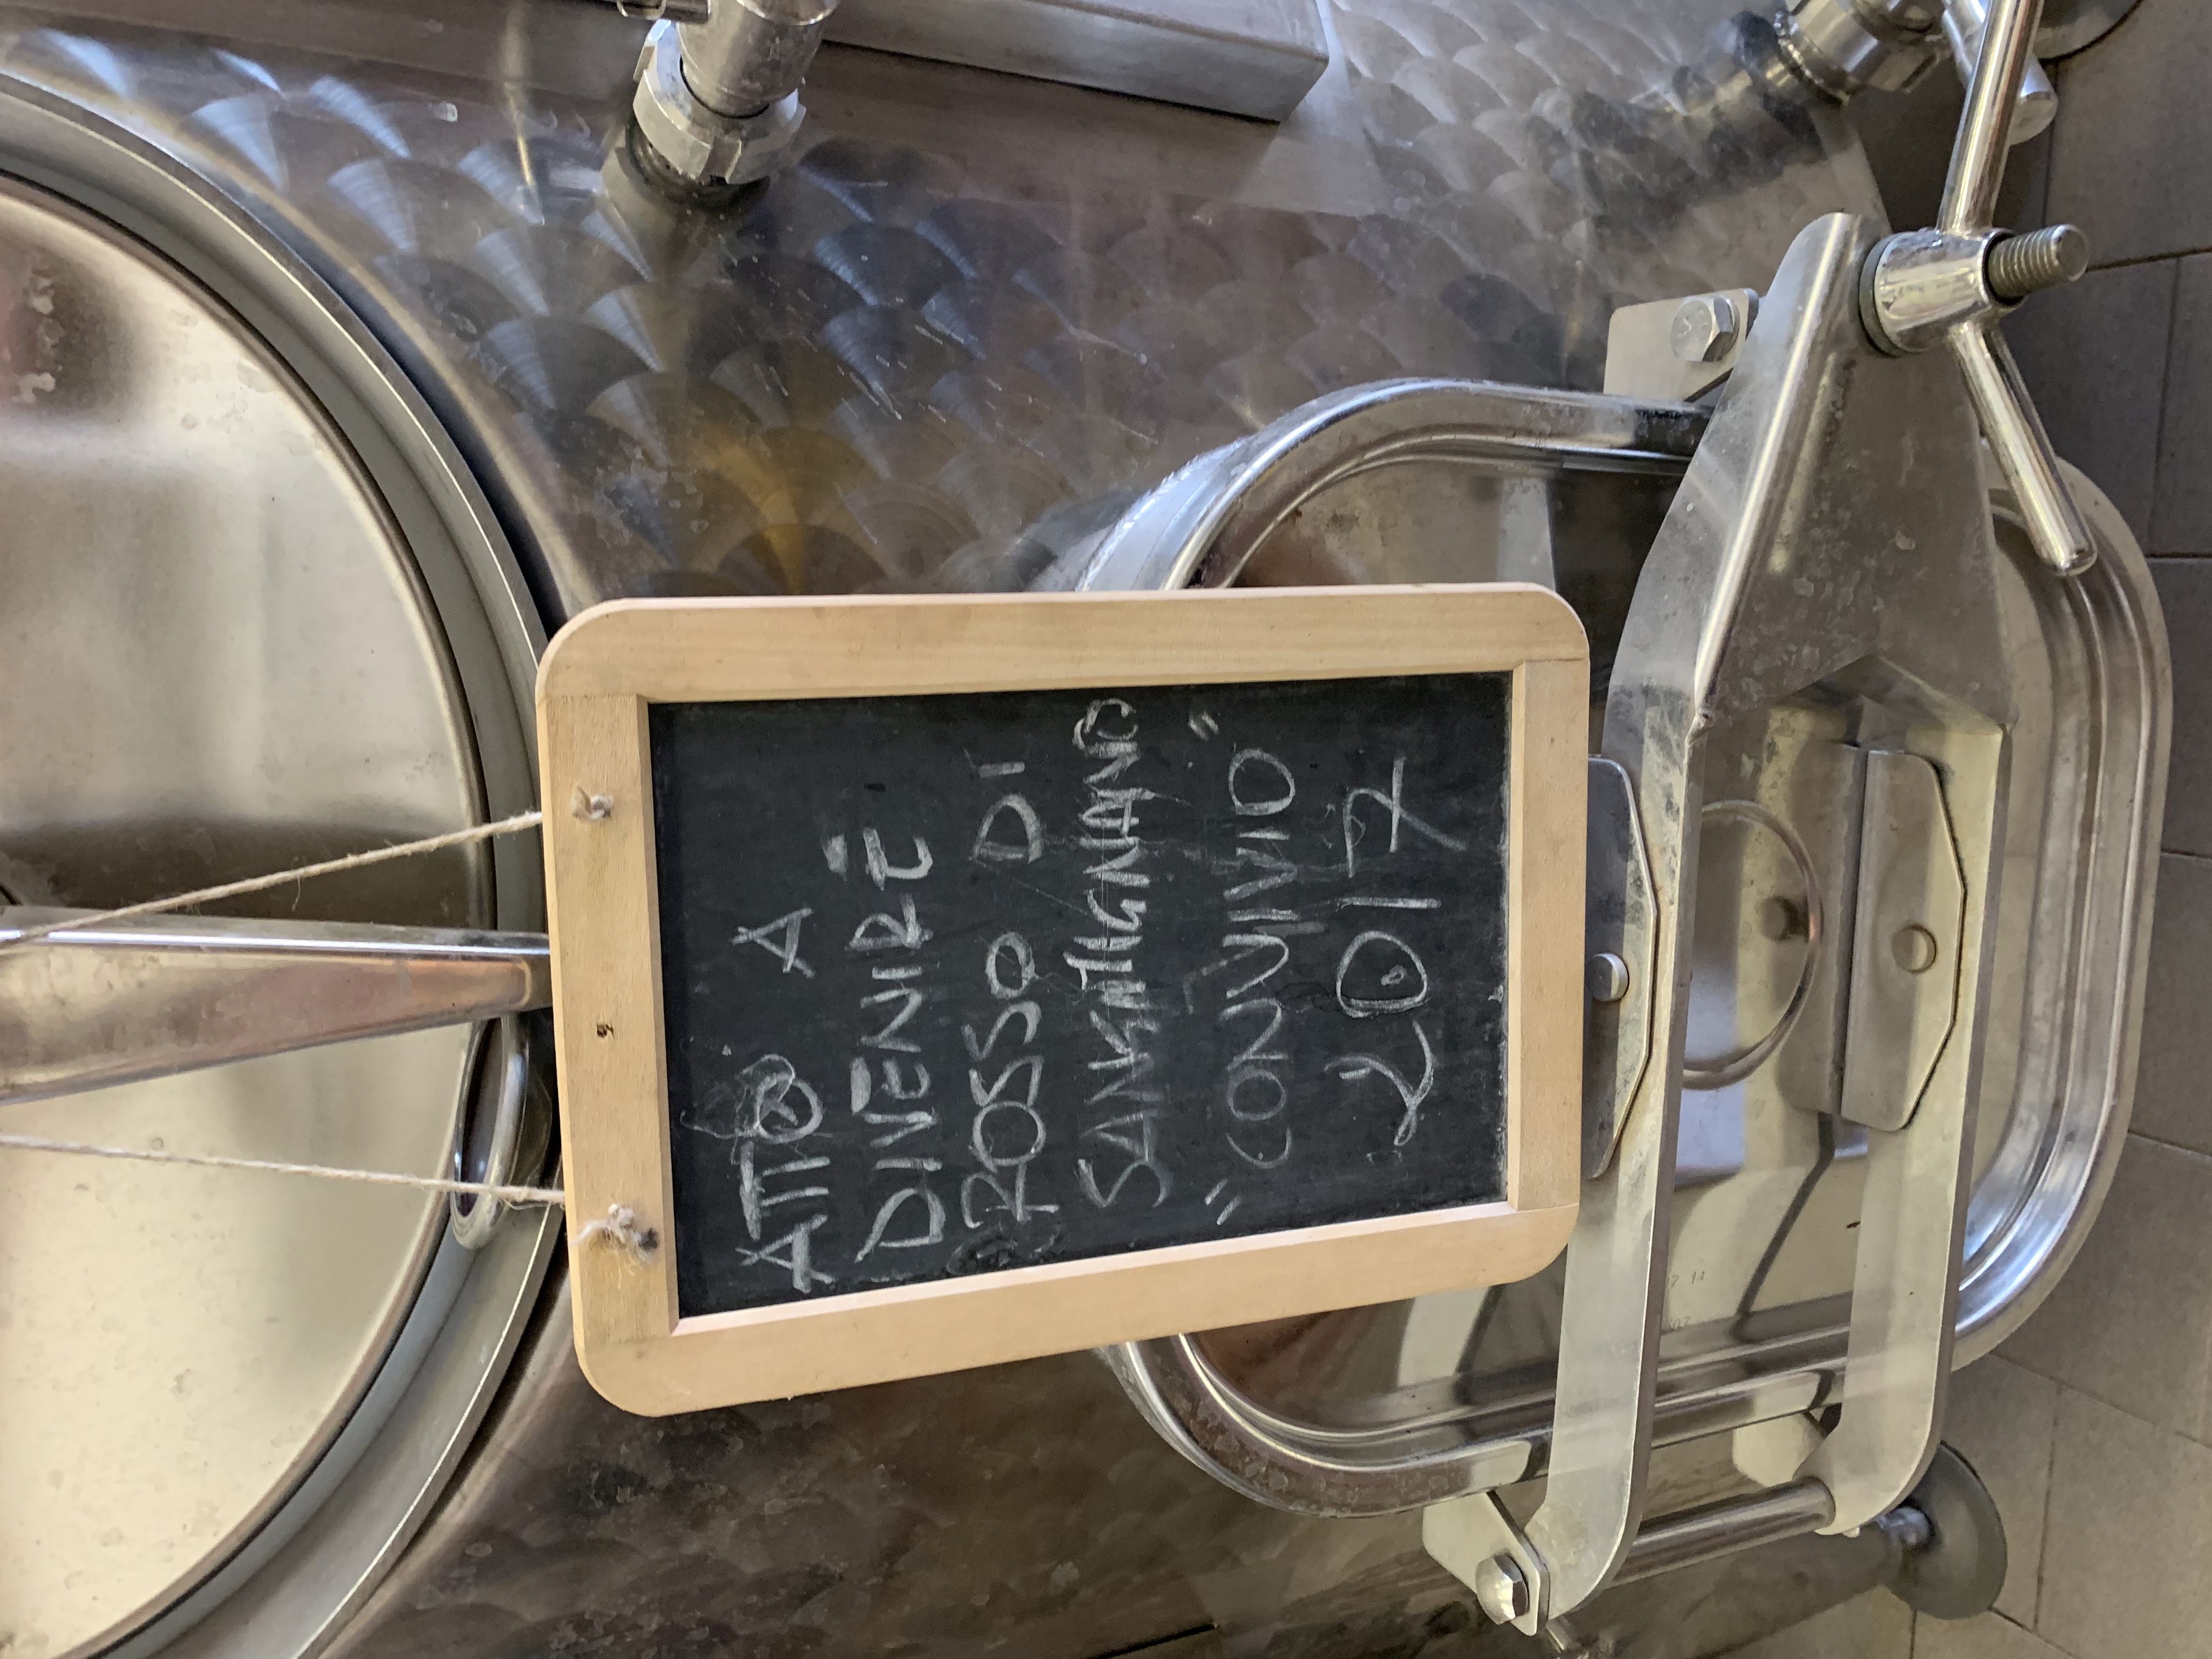 ATTO A
DIVENIRE
ROSSO DI
SANGIMIGNANO
"CONVIVIO"
2017